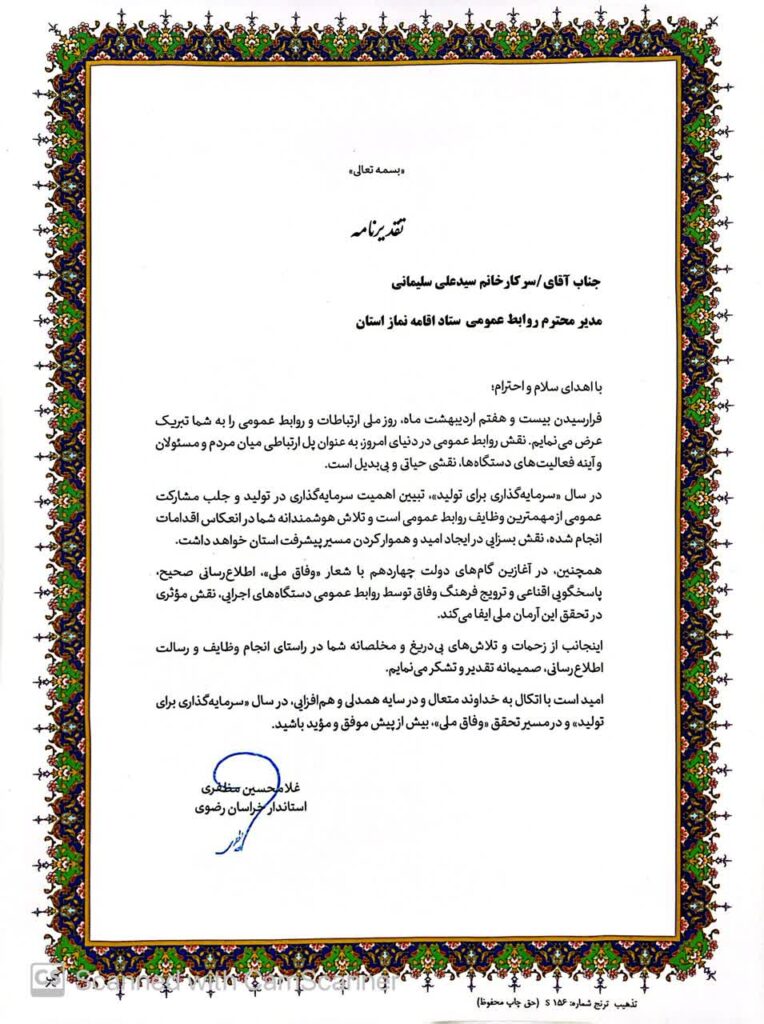 «بسمه تعالی»
تقدیرنامه
جناب آقای/سرکارخانم سیدعلی سلیمانی
مدیر محترم روابط عمومی ستاد اقامه نماز استان
با اهدای سلام و احترام؛
فرارسیدن بیست و هفتم اردیبهشت ماه، روز ملی ارتباطات و روابط عمومی را به شما تبریک
عرض می‌نمایم. نقش روابط عمومی در دنیای امروز، به عنوان پل ارتباطی میان مردم و مسئولان
و آینه فعالیت‌های دستگاه‌ها، نقشی حیاتی و بی‌بدیل است.
در سال «سرمایه‌گذاری برای تولید»، تبیین اهمیت سرمایه‌گذاری در تولید و جلب مشارکت
عمومی از مهمترین وظایف روابط عمومی است و تلاش هوشمندانه شما در انعکاس اقدامات
انجام شده، نقش بسزایی در ایجاد امید و هموار کردن مسیر پیشرفت استان خواهد داشت.
همچنین، در آغازین گام‌های دولت چهاردهم با شعار «وفاق ملی»، اطلاع‌رسانی صحیح،
پاسخگویی اقناعی و ترویج فرهنگ وفاق توسط روابط عمومی دستگاه‌های اجرایی، نقش مؤثری
در تحقق این آرمان ملی ایفا می‌کند.
اینجانب از زحمات و تلاش‌های بی‌دریغ و مخلصانه شما در راستای انجام وظایف و رسالت
اطلاع‌رسانی، صمیمانه تقدیر و تشکر می‌نمایم.
امید است با اتکال به خداوند متعال و در سایه همدلی و هم‌افزایی، در سال «سرمایه‌گذاری برای
تولید» و در مسیر تحقق «وفاق ملی»، بیش از پیش موفق و مؤید باشید.
غلامحسین مظفری
استاندار خراسان رضوی
تذهیب ترنج شماره: S ۱۵۶ (حق چاپ محفوظ)
CS Scanned with CamScanner